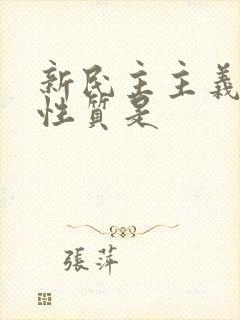 新民主主義
性質是
張萍